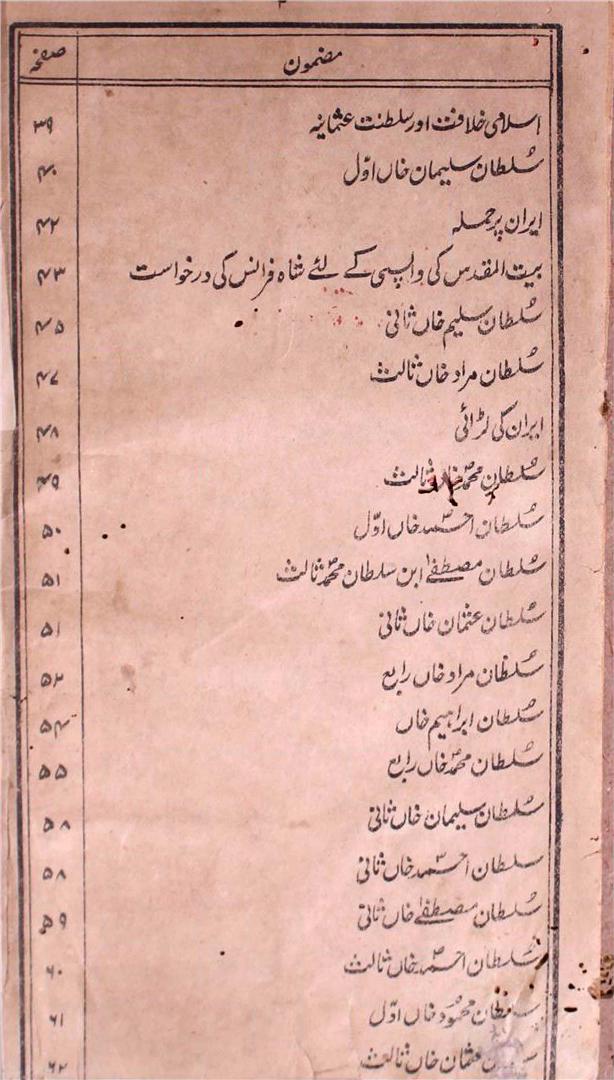 مضمون صفحہ
اسلامی خلافت اور سلطنت عثمانیہ ۳۹
سُلطان سلیمان خاں اوّل ۴۰
ایران پر حملہ ۴۲
بیت المقدس کی واپسی کے لئے شاہ فرانس کی درخواست ۴۳
سُلطان سلیم خاں ثانی ۴۵
سُلطان مراد خاں ثالث ۴۷
ایران کی لڑائی ۴۸
سُلطان محمدؐ خاں ثالث ۴۹
سُلطان احمد خاں اوّل ۵۰
سُلطان مصطفےٰ ابن سلطان محمدؐ ثالث ۵۱
سُلطان عثمان خاں ثانی ۵۱
سُلطان مراد خاں رابع ۵۲
سُلطان ابراہیم خاں ۵۴
سُلطان محمدؐ خاں رابع ۵۵
سُلطان سلیمان خاں ثانی ۵۸
سلطان احمد خاں ثانی ۵۸
سُلطان مصطفےٰ خاں ثانی ۵۹
سُلطان احمد خاں ثالث ۶۰
سلطان محمُود خاں اوّل ۶۱
عثمان خاں ثالث ۶۲